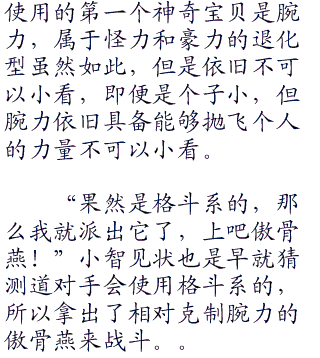 使用的第一个神奇宝贝是腕
力，属于怪力和豪力的退化
型虽然如此，但是依旧不可
以小看，即便是个子小，但
腕力依旧具备能够抛飞个人
的力量不可以小看。
“果然是格斗系的，那
么我就派出它了，上吧傲骨
燕！”小智见状也是早就猜
测道对手会使用格斗系的，
所以拿出了相对克制腕力的
傲骨燕来战斗。。